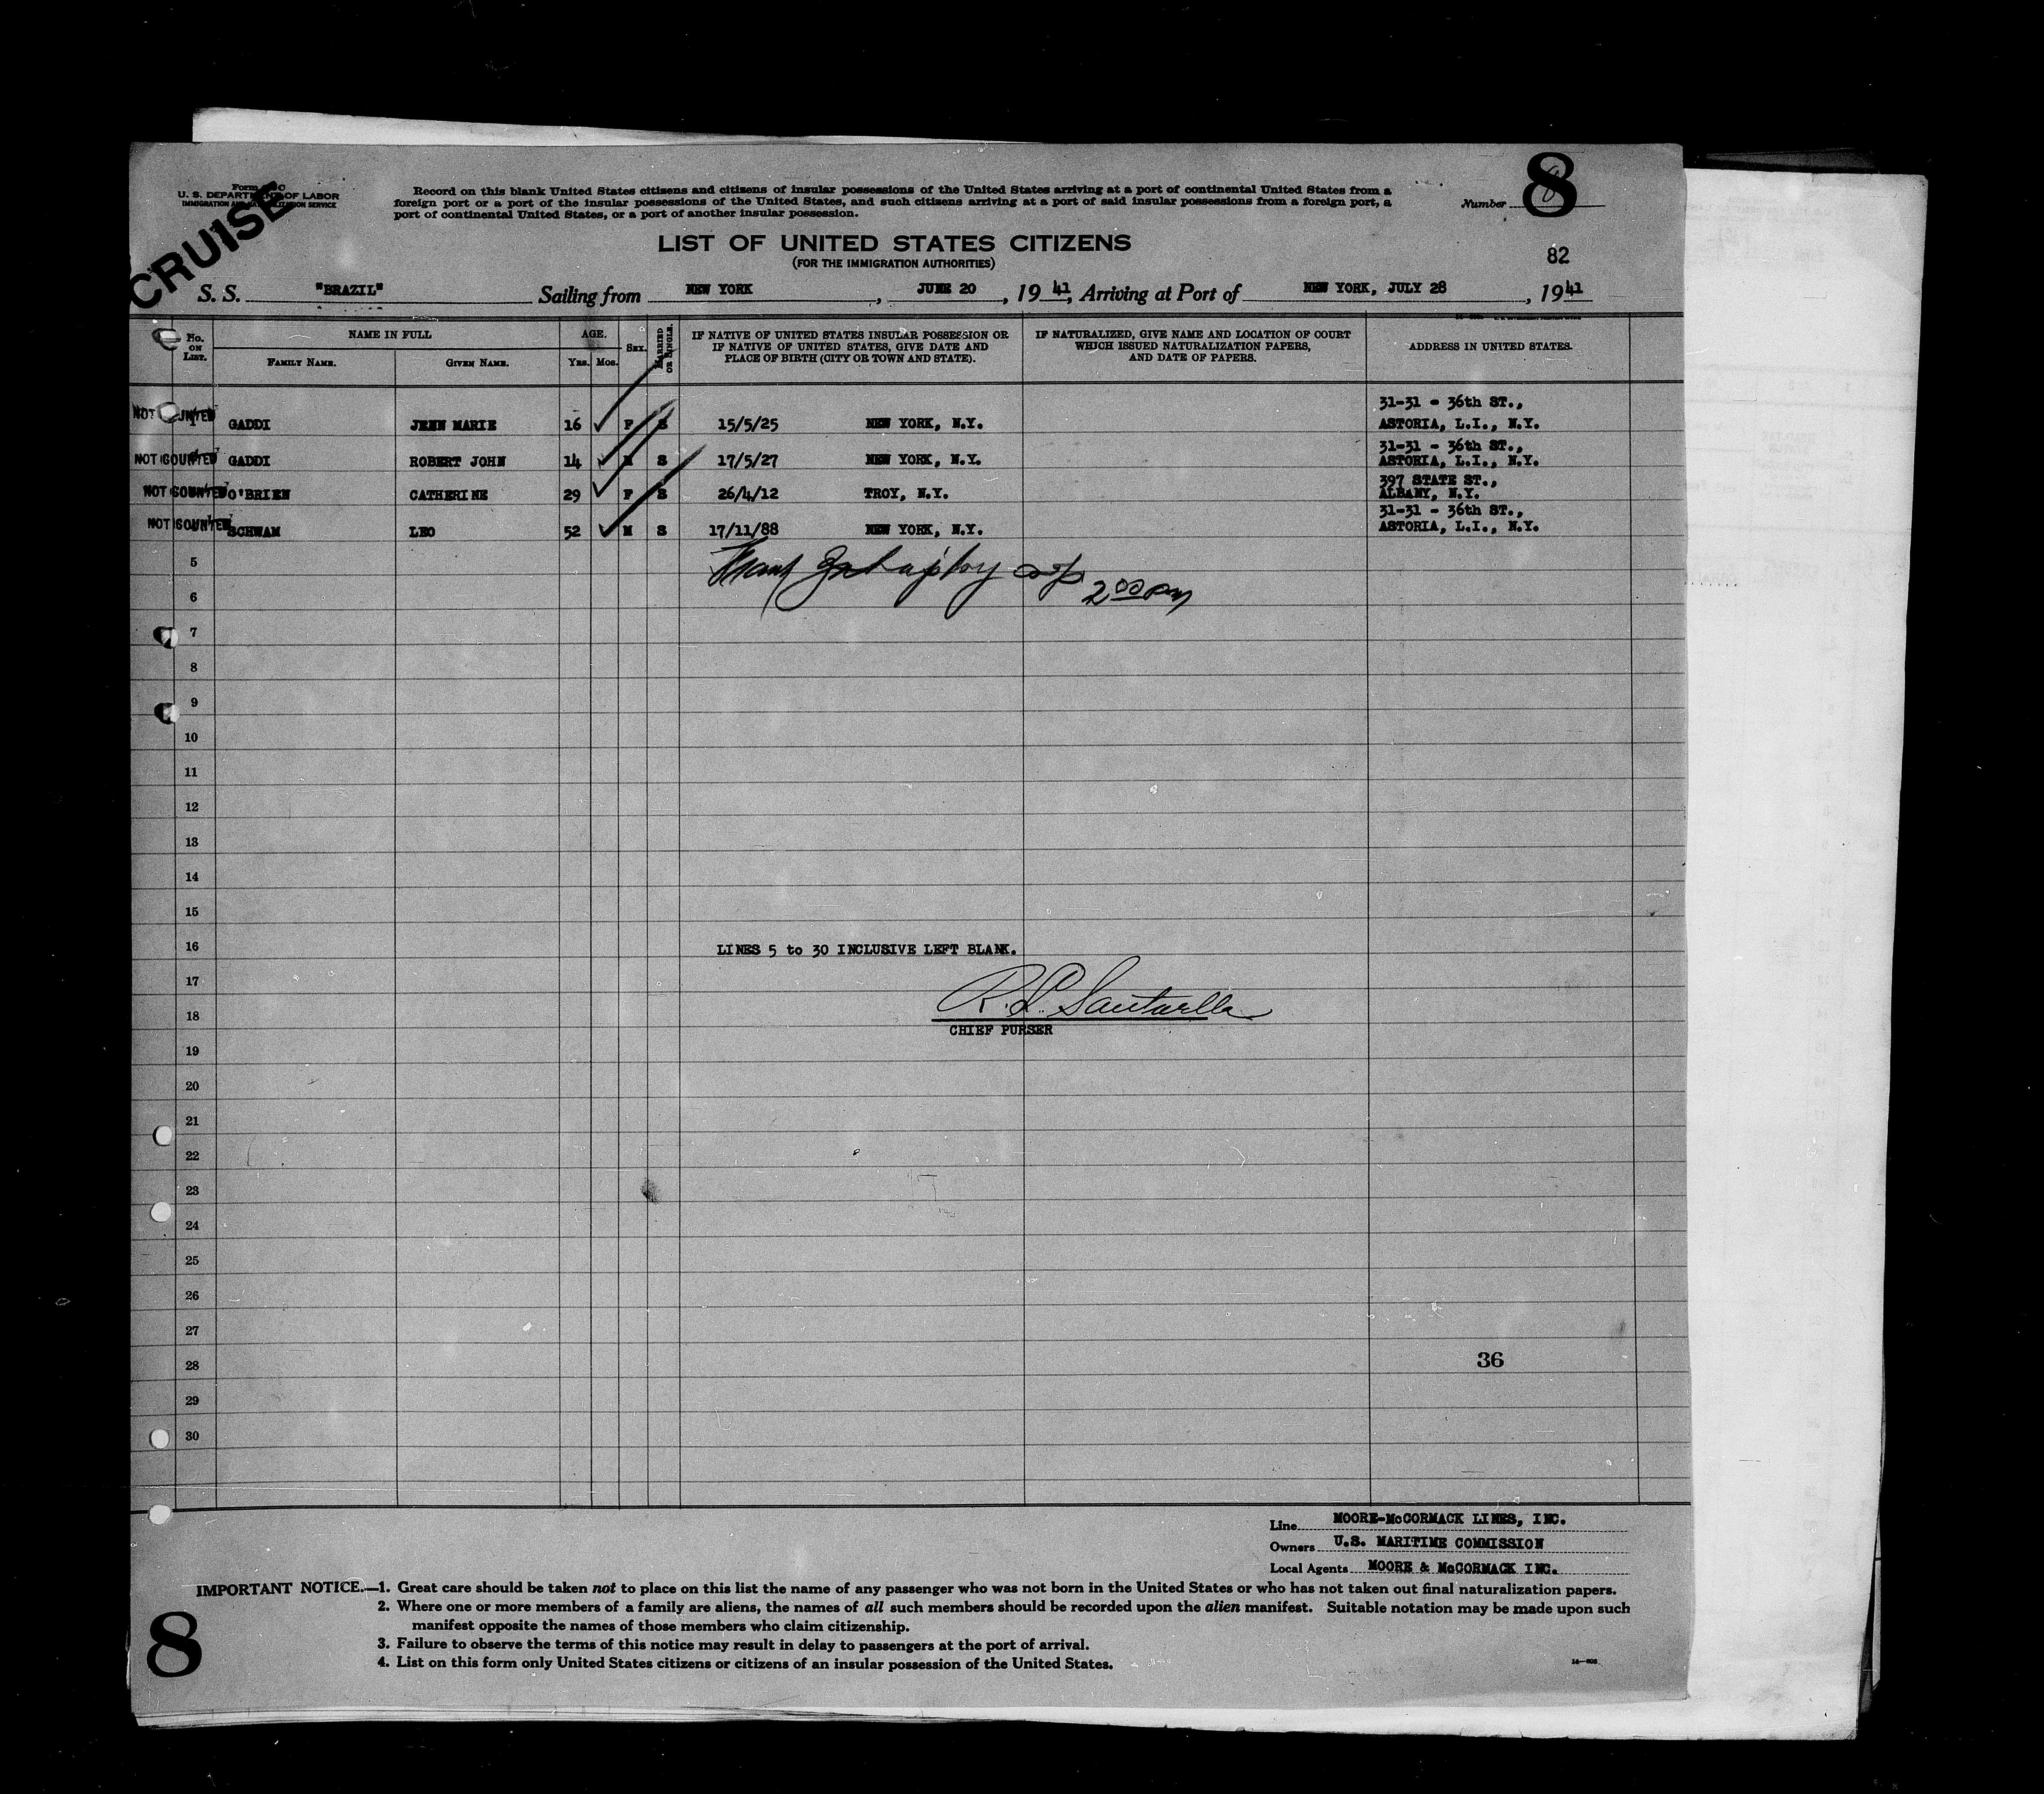 8
U. S. DEPARTMENT OF LABOR
IMMIGRATION AND NATURALIZATION SERVICE
CRUISE
Record on this blank United States citizens and citizens of insular possessions of the United States arriving at a port of continental United States from a
foreign port or a port of the insular possessions of the United States, and such citizens arriving at a port of said insular possessions from a foreign port, a
port of continental United States, or a port of another insular possession.
Number 8
LIST OF UNITED STATES CITIZENS
(FOR THE IMMIGRATION AUTHORITIES)
82
S. S. "BRAZIL" Sailing from NEW YORK, JUNE 20, 1941, Arriving at Port of NEW YORK, JULY 28, 1941
No. ON LIST. NAME IN FULL FAMILY NAME. GIVEN NAME. AGE. YRS. MOS. SEX. MARRIED OR SINGLE.
IF NATIVE OF UNITED STATES INSULAR POSSESSION OR
IF NATIVE OF UNITED STATES, GIVE DATE AND
PLACE OF BIRTH (CITY OR TOWN AND STATE).
IF NATURALIZED, GIVE NAME AND LOCATION OF COURT
WHICH ISSUED NATURALIZATION PAPERS,
AND DATE OF PAPERS.
ADDRESS IN UNITED STATES.
31-31 - 36th ST.,
NOT COUNTED GADDI JENN MARIE 16 F S 15/5/25 NEW YORK, N.Y. ASTORIA, L.I., N.Y.
31-31 - 36th ST.,
NOT COUNTED GADDI ROBERT JOHN 14 M S 17/5/27 NEW YORK, N.Y. ASTORIA, L.I., N.Y.
397 STATE ST.,
NOT COUNTED O'BRIEN CATHERINE 29 F S 26/4/12 TROY, N.Y. ALBANY, N.Y.
31-31 - 36th ST.,
NOT COUNTED SCHWAM LEO 52 M S 17/11/88 NEW YORK, N.Y. ASTORIA, L.I., N.Y.
5
2 00 pm
6
7
8
9
10
11
12
13
14
15
16 LINES 5 to 30 INCLUSIVE LEFT BLANK.
17
R. L. Santuella
18
CHIEF PURSER
19
20
21
22
23
24
25
26
27
28 36
29
30
Line MOORE-McCORMACK LINES, INC.
Owners U.S. MARITIME COMMISSION
Local Agents MOORE & McCORMACK INC.
IMPORTANT NOTICE.—1. Great care should be taken not to place on this list the name of any passenger who was not born in the United States or who has not taken out final naturalization papers.
2. Where one or more members of a family are aliens, the names of all such members should be recorded upon the alien manifest. Suitable notation may be made upon such
manifest opposite the names of those members who claim citizenship.
3. Failure to observe the terms of this notice may result in delay to passengers at the port of arrival.
4. List on this form only United States citizens or citizens of an insular possession of the United States.
8